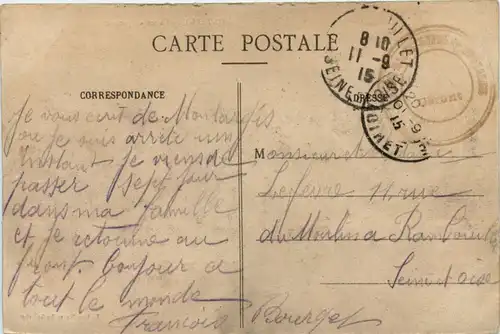 CARTE POSTALE
CORRESPONDANCE
ADRESSE
Je vous écrit de Montargis
ou je suis arrêté un
instant je viens de
passer sept jour
dans ma famille
et je retourne au
front. bonjour a
tout le monde
Francois Bourget
M onsieur et
Lefevre 11 rue
du Moulin a Rambouillet
Seine et Oise
8 10
11 - 9
15
SEINE
OISE
9
15
LOIRET